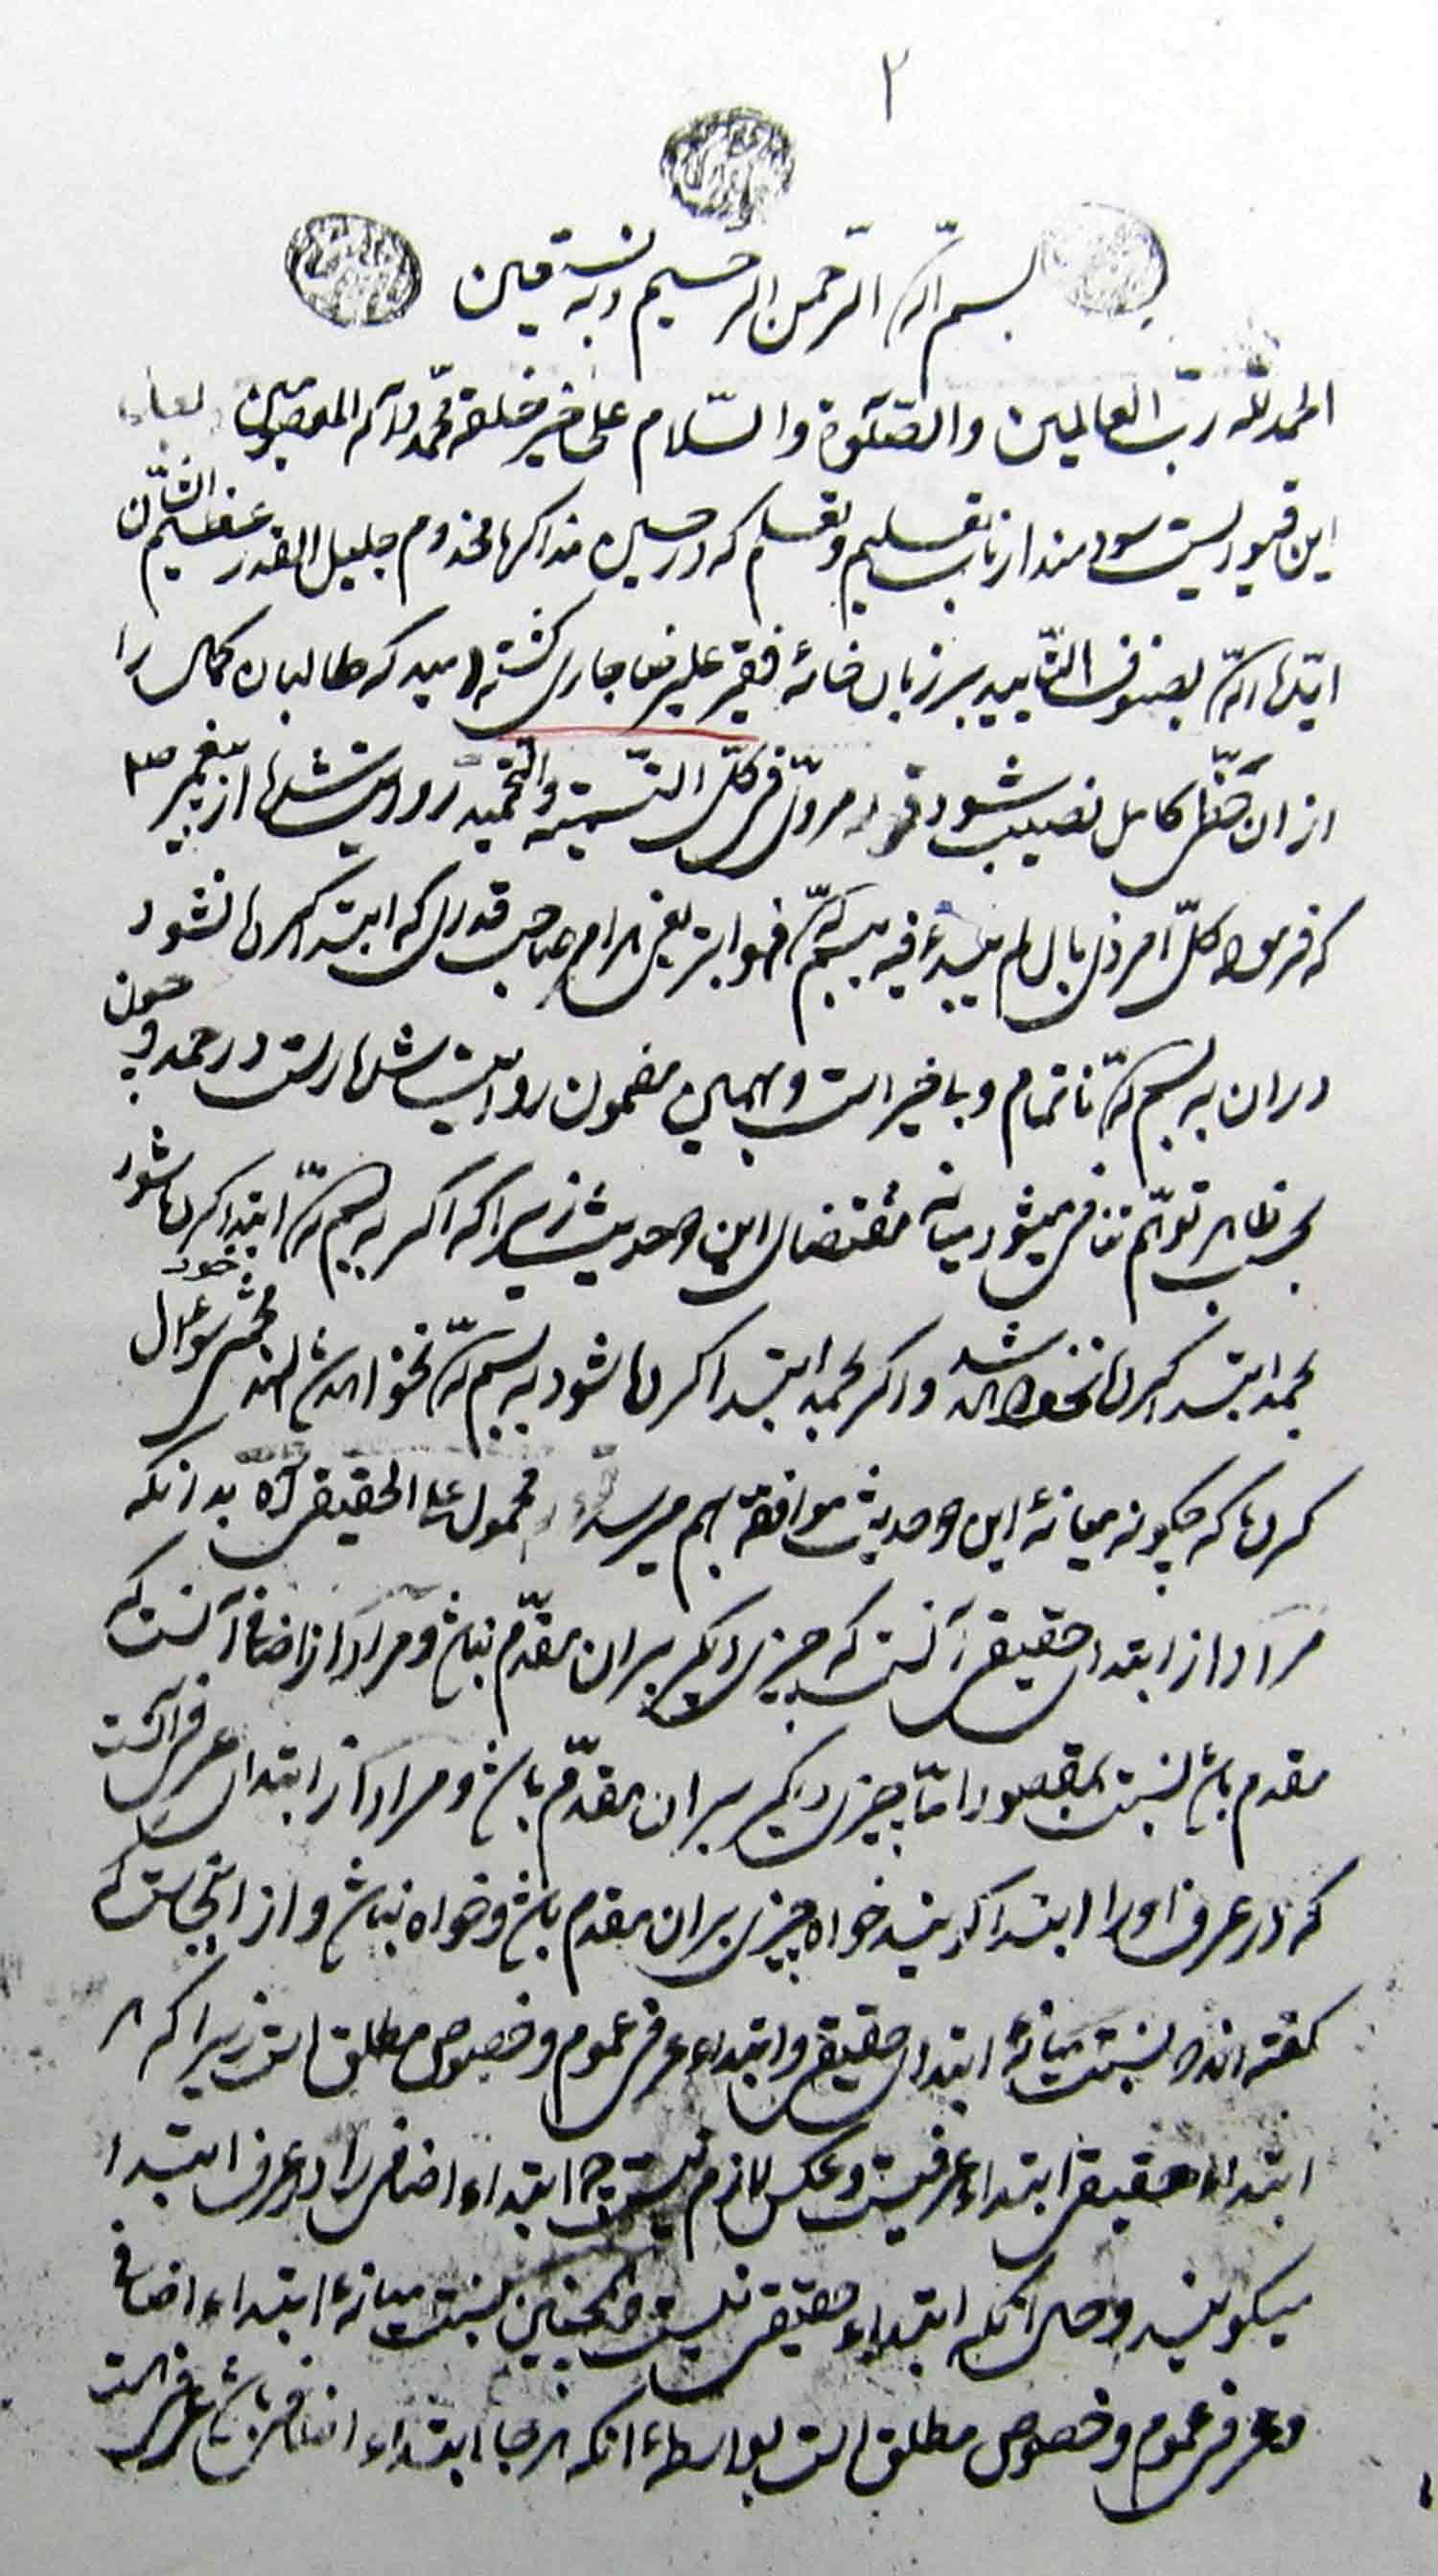 ۲
بسم الله الرّحمن الرّحیم وبه نستعین
الحمد لله ربّ العالمین والصّلوة والسّلام علی خیر خلقه محمّد وآله المعصومین
این قیودیست سودمند ارباب تعلیم وتعلم که در حین مذاکرهٔ مخدوم جلیل القدر عظیم الشّان
ایّده اللّه بصنوف التّایید بر زبان خامهٔ فقیر علیرضا جاری گشته امید که طالبان کمال را
از ان حظّی کامل نصیب شود قوله مرویّ فی کلّ التّسمیّه والتّحمید روایت شده از پیغمبر ص
که فرموده کلّ امر ذی بال لم یبدء فیه ببسم اللّه فهو ابتر یعنی هر امر صاحب قدری که ابتدا کرده نشود
دران به بسم اللّه ناتمام و بی اخیر است وبهمین مضمون روایت شده است در حمد و چون
بحسب ظاهر توهّم تنافی میشود میانه مقتضای این دو حدیث زیرا که اگر به بسم اللّه ابتدا کرده شود
بحمد ابتدا کرده نخواهد شد و اگر بحمد ابتدا کرده شود به بسم اللّه نخواهد شد لهذا محشی خود سؤال
کرده که چگونه میانهٔ این دو حدیث موافقة بهم میرسد محمول علی الحقیقی آه بدانکه
مراد از ابتداء حقیقی آنست که چیزی دیگر بران مقدّم نباشد و مراد از اضافی آنست که
مقدم باشد نسبت بمقصود امّا چیزی دیگر بران مقدّم باشد و مراد از ابتدای عرفی آنست
که در عرف اورا ابتدا گویند خواه چیزی بران مقدم باشد وخواه نباشد و از اینجاست که
گفته اند که نسبت میانهٔ ابتدای حقیقی و ابتداء عرفی عموم وخصوص مطلق است زیرا که هر
ابتداء حقیقی ابتداء عرفیست وعکس لازم نیست چه ابتداء اضافی را در عرف ابتدا
میگویند وحال انکه ابتداء حقیقی نیست وهمچنین نسبت میانهٔ ابتداء اضافی
وعرفی عموم وخصوص مطلق است بواسطهٔ انکه هرجا ابتداء اضافی باشد عرفی است